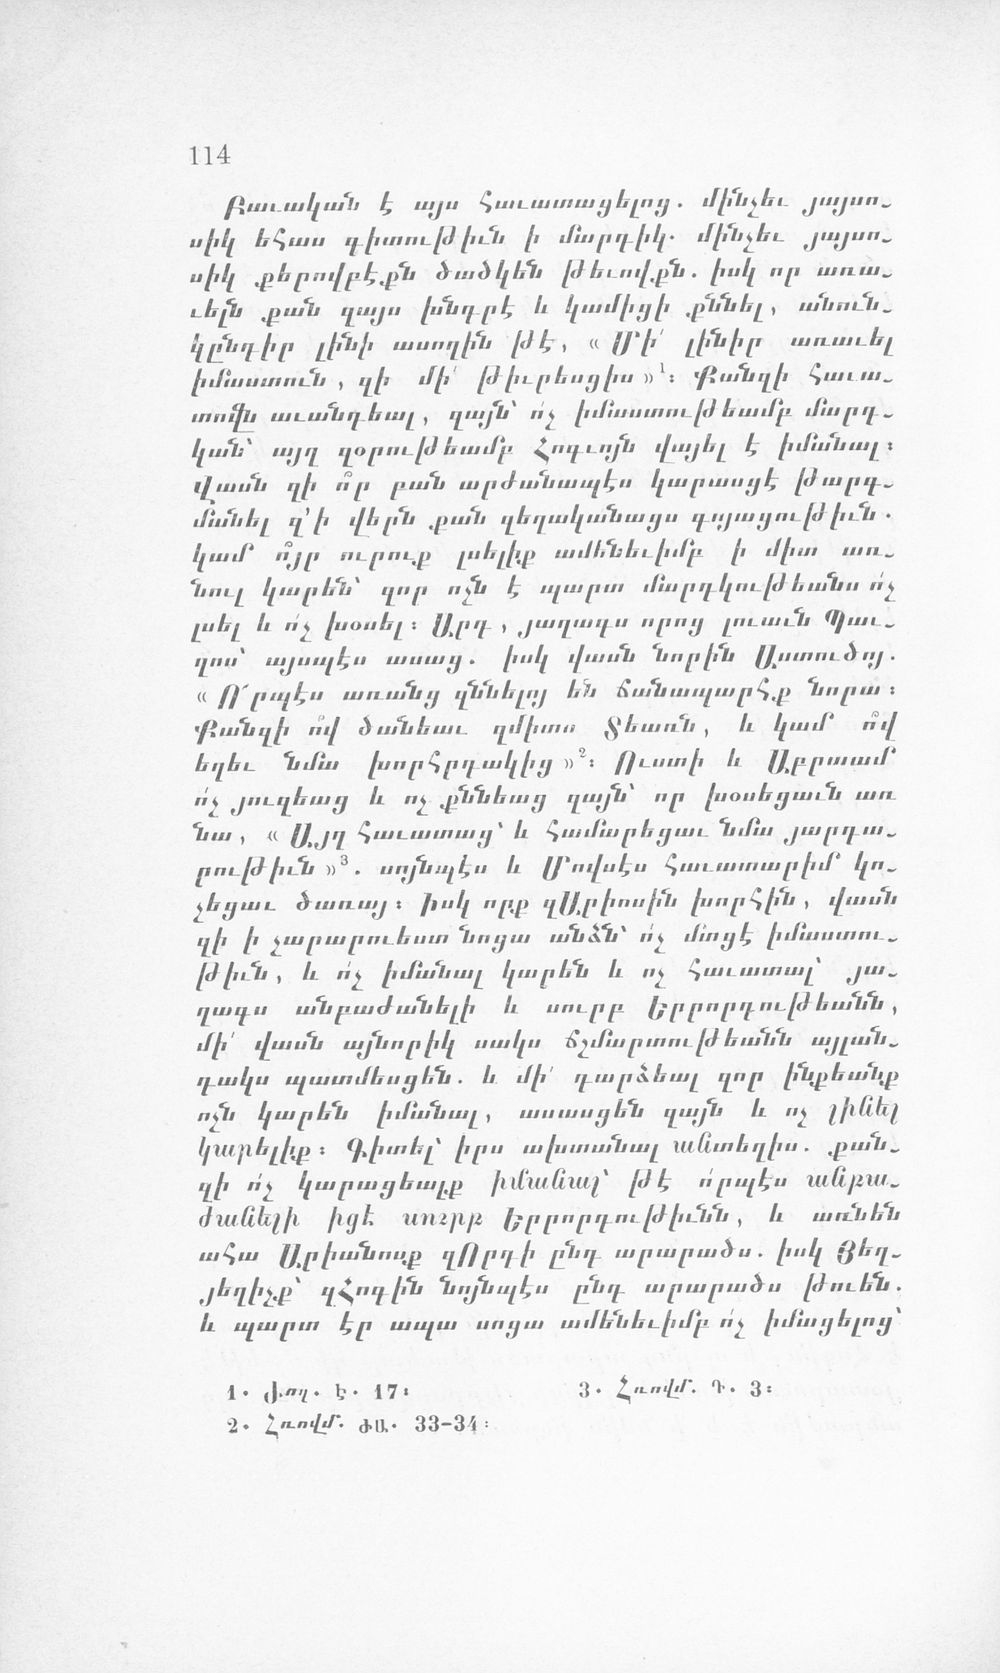 114
Բաւական է այս հաւատացելոց. մինչեւ յայսո-
սիկ եհաս գիտութիւն ի մարդիկ. մինչեւ յայսո-
սիկ քերովբէքն ծածկեն թեւովքն. իսկ որ առա-
ւելն քան զայս խնդրէ և կամիցի քննել, անուն-
կընդիր լինի ասողին թէ, « Մի՛ լինիր առաւել
իմաստուն, զի մի՛ թիւրեսցիս »1: Քանզի հաւա-
տովն աւանդեալ, զայն՝ ո՛չ իմաստութեամբ մարդ-
կան՝ այղ զօրութեամբ Հոգւոյն վայել է իմանալ:
Վասն զի ո՞ր բան արժանապէս կարասցէ թարգ-
մանել զ՚ի վերն քան զեղականացս գոյացութիւն.
կամ ո՞յր ուրուք լսելիք ամենեւիմբ ի միտ առ-
նուլ կարեն՝ զոր ոչն է պարտ մարդկութեանս ո՛չ
լսել և ո՛չ խօսել: Արդ, յաղագս որոց լուաւն Պաւ-
ղոս՝ այսպէս ասաց. իսկ վասն նորին Աստուծոյ.
« Ո՜րպէս առանց զննելոյ են ճանապարհք նորա:
Քանզի ո՞վ ծանեաւ զմիտս Տեառն, և կամ ո՞վ
եղեւ նմա խորհրդակից »2: Ուստի և Աբրաամ
ո՛չ յուզեաց և ոչ քննեաց զայն՝ որ խօսեցաւն առ
նա, « Այղ հաւատաց՝ և համարեցաւ նմա յարդա-
րութիւն »3. սոյնպէս և Մովսէս հաւատարիմ կո-
չեցաւ ծառայ: Իսկ որք զԱրիոսին խորհին, վասն
զի ի չարարուեստ նոցա անձն՝ ո՛չ մտցէ իմաստու-
թիւն, և ո՛չ իմանալ կարեն և ոչ հաւատալ՝ յա-
ղագս անբաժանելի և սուրբ Երրորդութեանն,
մի՛ վասն այնորիկ սակս ճշմարտութեանն այլան-
դակս պատմեսցեն. և մի՛ դարձեալ զոր ինքեանք
ոչն կարեն իմանալ, ասասցեն զայն և ոչ լինել
կարելիք: Գիտել՝ իրս ախտանալ անտեղիս. քան-
զի ո՛չ կարացեալք իմանալ՝ թէ ո՛րպէս անբա-
ժանելի իցէ սուրբ Երրորդութիւնն, և առնեն
ահա Արիանոսք զՈրդի ընդ արարածս. իսկ Յեղ-
յեղիչք՝ զՀոգին նոյնպէս ընդ արարածս թուեն.
և պարտ էր ապա սոցա ամենեւիմբ ո՛չ իմացելոց՝
1. Ժող. Է. 17:
3. Հռովմ. Դ. 3:
2. Հռովմ. ԺԱ. 33-34: